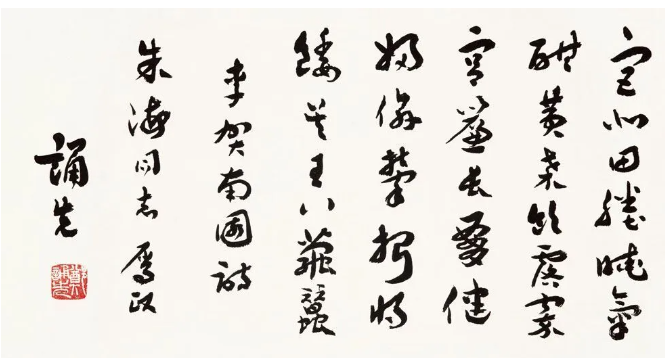 宫北田塍曉氣
酣黄桑飲露窣
宫簾長腰健
婦偷攀折將
餧吴王八繭蠶
李賀南園詩
朱海同志属政
誦先
鄭誦先